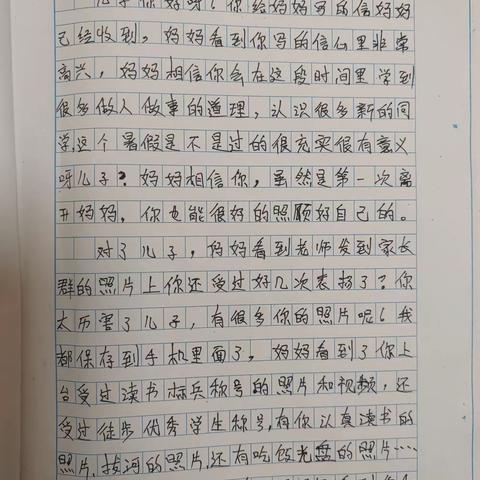 儿子你好呀!你给妈妈写的信妈妈
已经收到,妈妈看到你写的信心里非常
高兴,妈妈相信你会在这段时间里学到
很多做人做事的道理,认识很多新的同
学,这个暑假是不是过的很充实很有意义
呀儿子?妈妈相信你,虽然是第一次离
开妈妈,你也能很好的照顾好自己的。
对了儿子,妈妈看到老师发到家长
群的照片上你还受过好几次表扬了?你
太历害了儿子,有很多你的照片呢!我
都保存到手机里面了,妈妈看到了你上
台受过读书标兵称号的照片和视频,还
受过徒步优秀学生称号,有你认真读书的
照片,拔河的照片,还有吃饭光盘的照片……